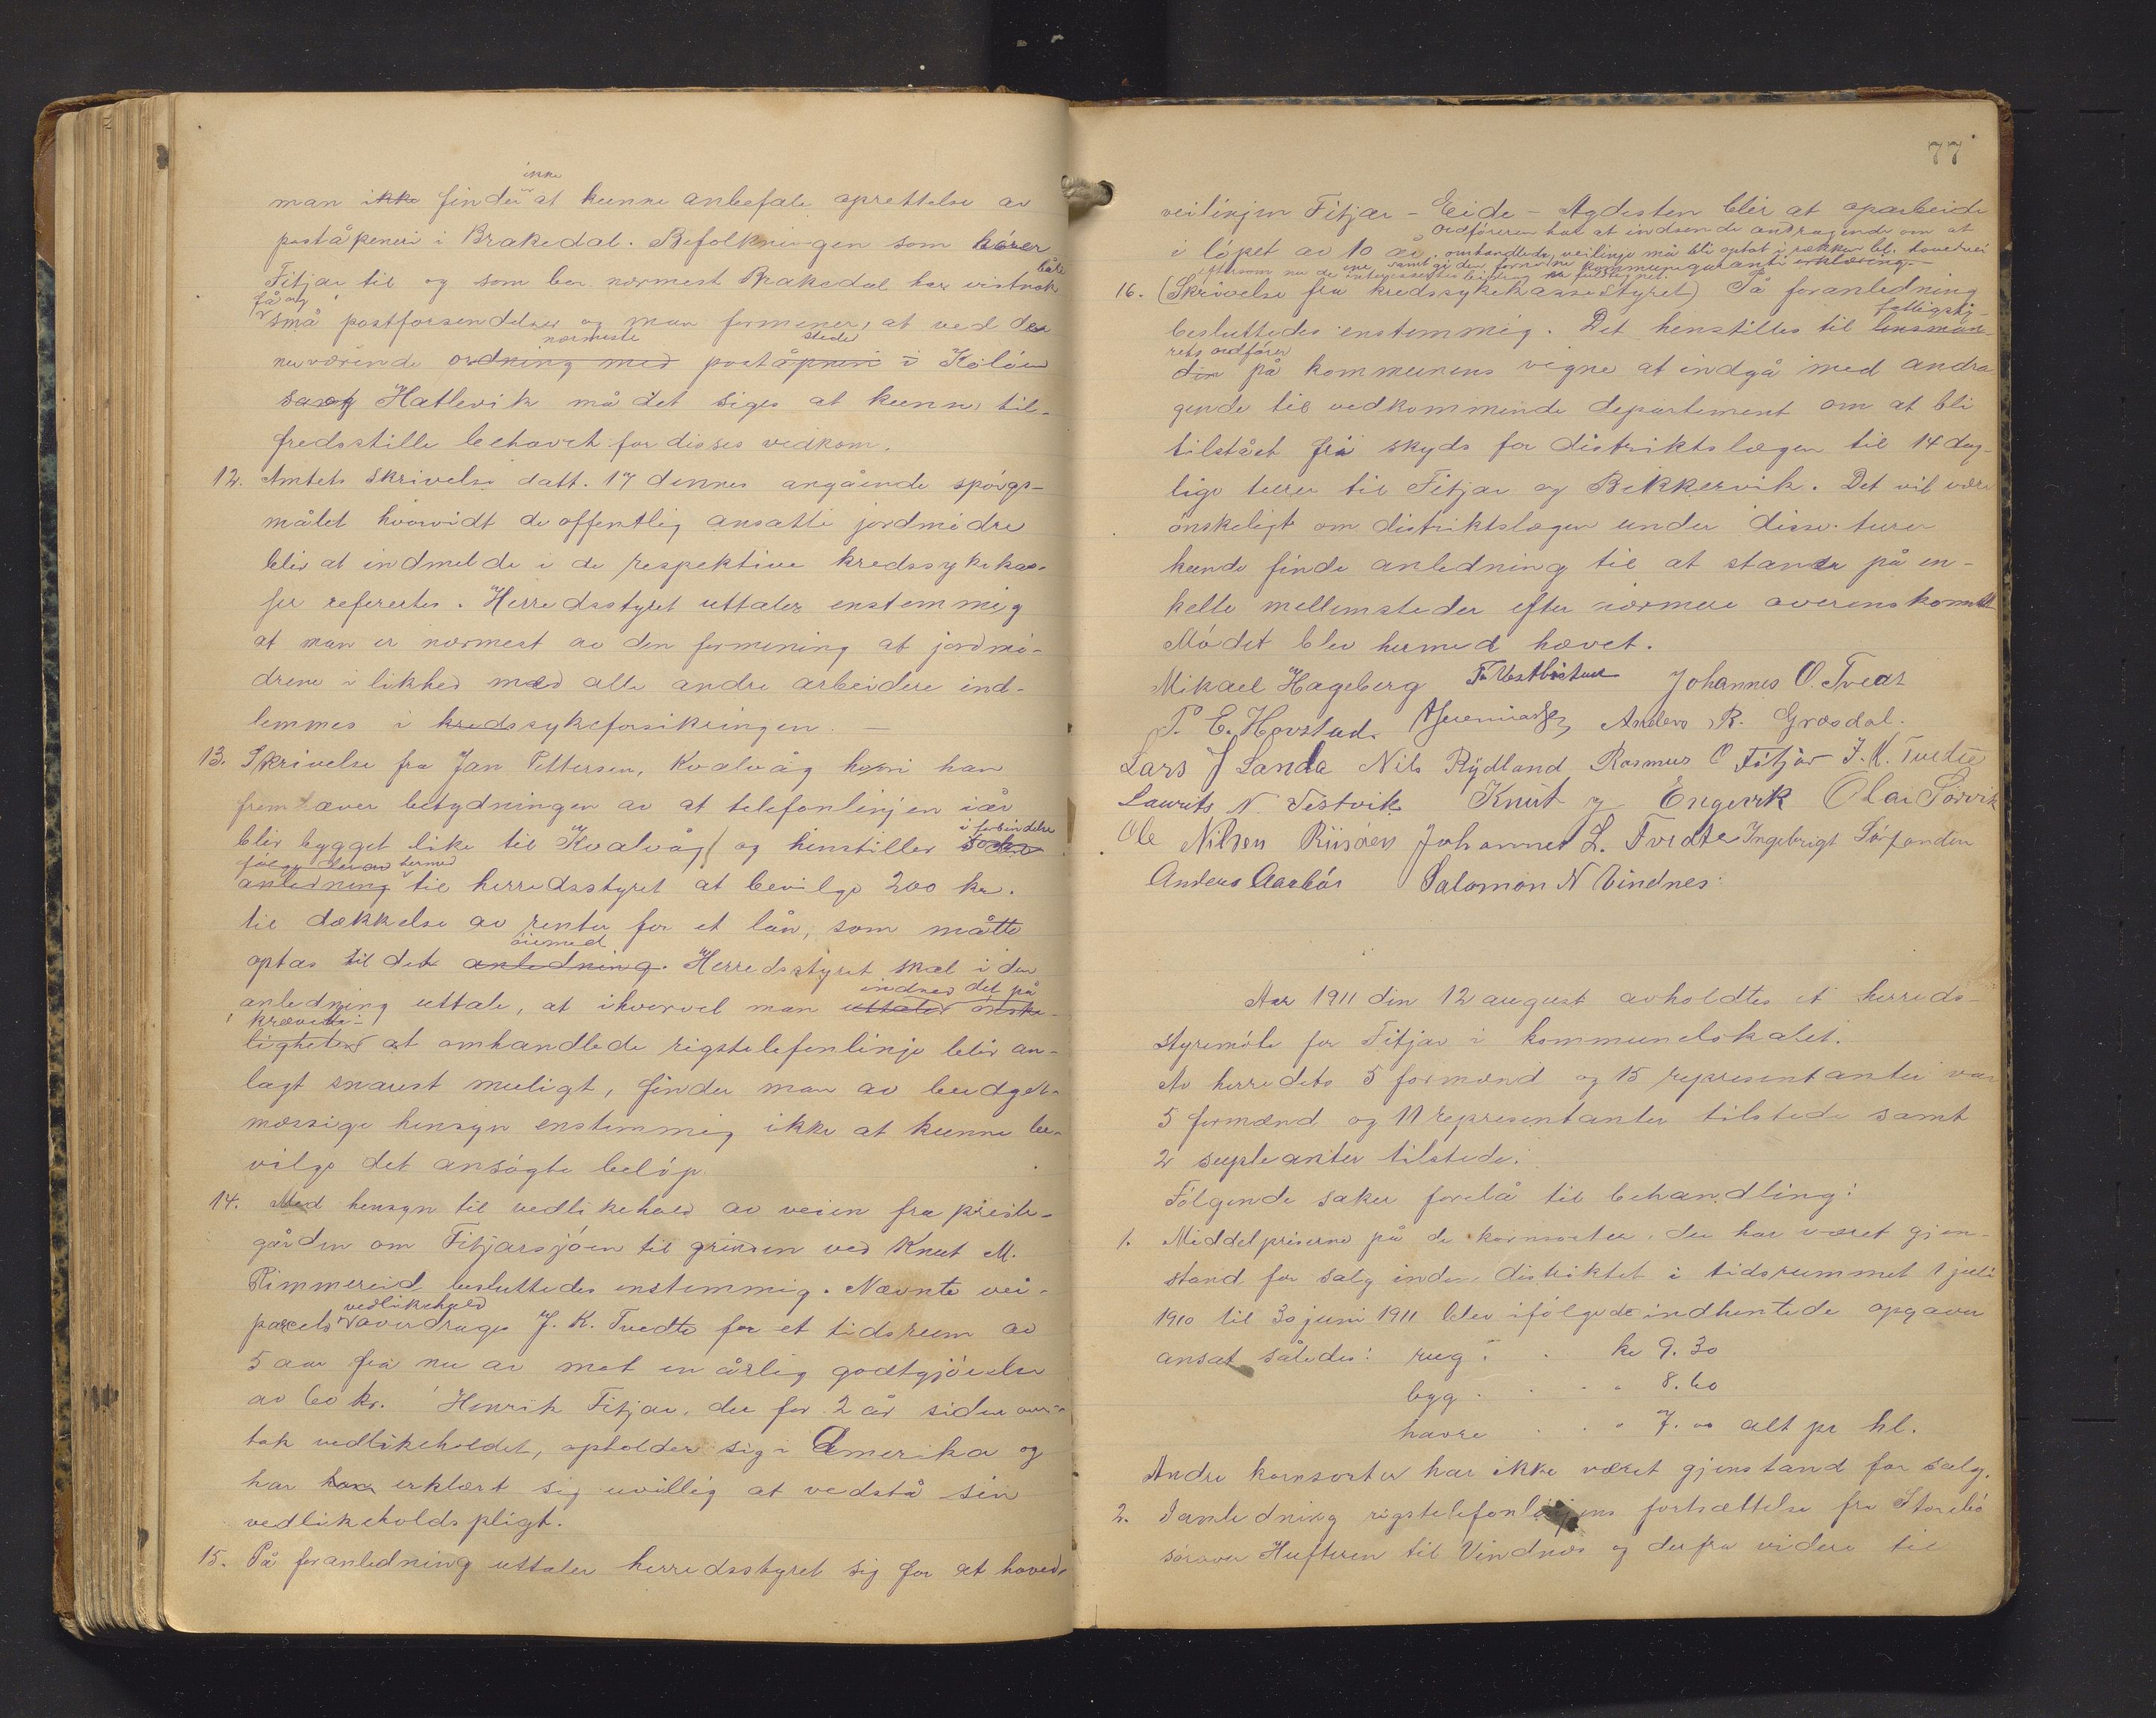 ikke
man ikke finder at kunne anbefale oprettelse av
poståpneri i Brakedal. Befolkningen som hører
Fitjar til og som bor nærmest Brakedal har vistnok både
få og
små postforsendelser og man formener, at ved den
nærmeste steder
nuværende ordning med poståpneri i Koløen
samt Hatlevik må det siges at kunne til-
fredsstille behovet for disses vedkom.
12. Amtets skrivelse datt. 17 dennes angående spørgs-
målet hvorvidt de offentlig ansatte jordmødre
blir at indmelde i de respektive kredssykekas-
ser refertes. Herredsstyret uttaler enstemmig
at man er nærmest av den formening at jordmø-
drene i likhed med alle andre arbeidere ind-
lemmes i kredssykeforsikringen. —
13. Skrivelse fra Jan Pettersen, Kvalvåg hvori han
fremhæver betydningen av at telefonlinjen iår
i forbindelse
blir bygget like til Kvalvåg og henstiller
følge derav hermed
anledning til herredsstyret at bevilge 200 kr.
til dækkelse av renter for et lån, som måtte
øiemed
optas til det anledning. Herredsstyret skal i den
indser det på
anledning uttale, at ihvorvel man uttaler ønske-
krævede
ligheten at omhandlede rigstelefonlinje blir an-
lagt snarest muligt, finder man av budget-
mæssige hensyn enstemmig ikke at kunne be-
vilge det ansøgte beløp.
14. Med hensyn til vedlikehold av veien fra preste-
gården om Fitjarsjøen til grinden ved Knut M.
Rimmereid besluttedes enstemmig. Nævnte vei-
vedlikehold
parcels overdrages J. K. Tvedte for et tidsrum av
5 aar fra nu av mot en årlig godtgjørelse
av 60 kr. Henrik Fitjar, der for 2 år siden over-
tok vedlikeholdet, opholder sig i Amerika og
har han erklært sig uvillig at vedstå sin
vedlikeholdspligt.
15. På foranledning uttaler herredsstyret sig for at hoved-
77
veilinjen Fitjar - Eide - Agdesten blir at oparbeide
Ordføreren har at indsende andragende om at
i løpet av 10 år. omhandlede veilinje må bli optat i rækken bl. hovedvei
eftersom nu de
kommunegaranti erklæring.
16. (Skrivelse fra kredssykekassestyret) På foranledning
fattigsty-
besluttedes enstemmig. Det henstilles til lensman-
rets ordfører
den på kommunens vegne at indgå med andra
gende til vedkommende departement om at bli
tilstået fri skyds for distriktslægen til 14 dag-
lige turer til Fitjar og Bekkervik. Det vil være
ønskeligt om distriktslægen under disse turer
kunde finde anledning til at stanse på en-
kelte mellemsteder efter nærmere overenskomst
Mødet blev hermed hævet.
Mikael Hageberg F. Vestbøstad Johannes O. Tveat
P. E. Hovstad. Anders R. Græsdal.
Lars J Sanda Nils Rydland Rasmus O Fitjar J. K. Tvedte
Laurits N. Vestvik Knut J Engevik Olai Sørvik
Ole Nilsen Riisøen Johannes L. Tvedte Ingebrigt Sørfonden
Anders Aarbø Salomon N Vindnes.
Aar 1911 den 12 august avholdtes et herreds-
styremøte for Fitjar i kommunelokalet.
Av herredets 5 formænd og 15 representanter var
5 formænd og 11 representanter tilstede samt
2 supleanter tilstede.
Følgende saker forelå til behandling:
1. Middelpriserne på de kornsorter, der har været gjen-
stand for salg inden distriktet i tidsrummet 1 juli
1910 til 30 juni 1911 blev ifølge de indhentede opgaver
ansat således: rug . . kr 9.30
byg . . . " 8.60
havre . . " 7.00 alt pr hl.
Andre kornsorter har ikke været gjenstand for salg.
2. I anledning rigstelefonlinjens fortsættelse fra Storebø
sørover Hufteren til Vindnes og derfra videre til